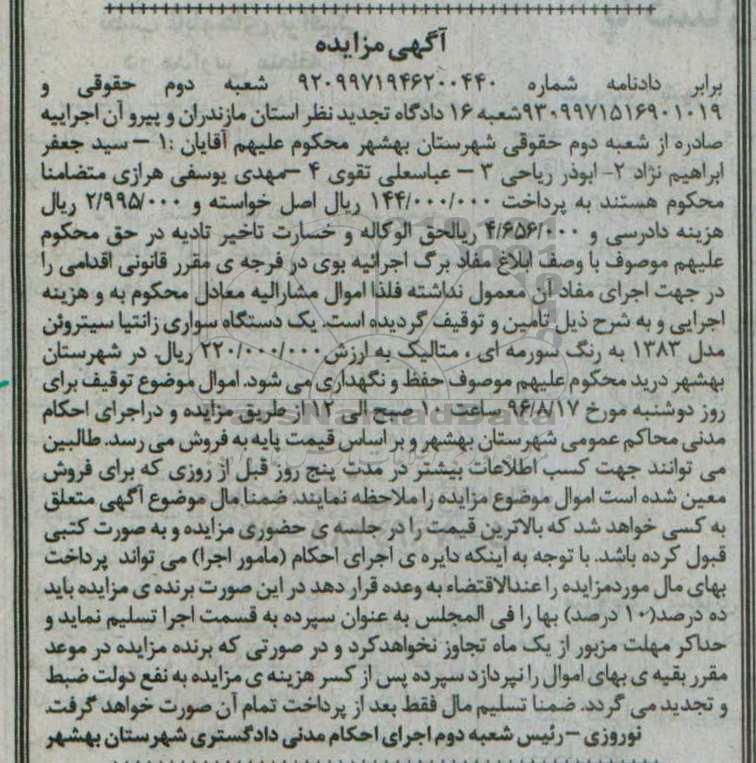 آگهی مزایده
برابر دادنامه شماره ۹۲۰۹۹۷۱۹۴۶۲۰۰۴۴۰ شعبه دوم حقوقی و
۹۳۰۹۹۷۱۵۱۶۹۰۱۰۱۹شعبه ۱۶ دادگاه تجدید نظر استان مازندران و پیرو آن اجراییه
صادره از شعبه دوم حقوقی شهرستان بهشهر محکوم علیهم آقایان :۱ – سید جعفر
ابراهیم نژاد ۲- ابوذر ریاحی ۳ – عباسعلی تقوی ۴ –مهدی یوسفی هرازی متضامنا
محکوم هستند به پرداخت ۱۴۴/۰۰۰/۰۰۰ ریال اصل خواسته و ۲/۹۹۵/۰۰۰ ریال
هزینه دادرسی و ۴/۶۵۶/۰۰۰ ریالحق الوکاله و خسارت تاخیر تادیه در حق محکوم
علیهم موصوف با وصف ابلاغ مفاد برگ اجرائیه بوی در فرجه ی مقرر قانونی اقدامی را
در جهت اجرای مفاد آن معمول نداشته فلذا اموال مشارالیه معادل محکوم به و هزینه
اجرایی و به شرح ذیل تامین و توقیف گردیده است. یک دستگاه سواری زانتیا سیتروئن
مدل ۱۳۸۳ به رنگ سورمه ای ، متالیک به ارزش ۲۲۰/۰۰۰/۰۰۰ ریال. در شهرستان
بهشهر درید محکوم علیهم موصوف حفظ و نگهداری می شود. اموال موضوع توقیف برای
روز دوشنبه مورخ ۹۶/۸/۱۷ ساعت ۱۰ صبح الی ۱۲ از طریق مزایده و دراجرای احکام
مدنی محاکم عمومی شهرستان بهشهر و بر اساس قیمت پایه به فروش می رسد. طالبین
می توانند جهت کسب اطلاعات بیشتر در مدت پنج روز قبل از روزی که برای فروش
معین شده است اموال موضوع مزایده را ملاحظه نمایند. ضمنا مال موضوع آگهی متعلق
به کسی خواهد شد که بالاترین قیمت را در جلسه ی حضوری مزایده و به صورت کتبی
قبول کرده باشد. با توجه به اینکه دایره ی اجرای احکام (مامور اجرا) می تواند پرداخت
بهای مال موردمزایده را عندالاقتضاء به وعده قرار دهد در این صورت برنده ی مزایده باید
ده درصد(۱۰ درصد) بها را فی المجلس به عنوان سپرده به قسمت اجرا تسلیم نماید و
حداکر مهلت مزبور از یک ماه تجاوز نخواهدکرد و در صورتی که برنده مزایده در موعد
مقرر بقیه ی بهای اموال را نپردازد سپرده پس از کسر هزینه ی مزایده به نفع دولت ضبط
و تجدید می گردد. ضمنا تسلیم مال فقط بعد از پرداخت تمام آن صورت خواهد گرفت.
نوروزی – رئیس شعبه دوم اجرای احکام مدنی دادگستری شهرستان بهشهر
ParsNamadData